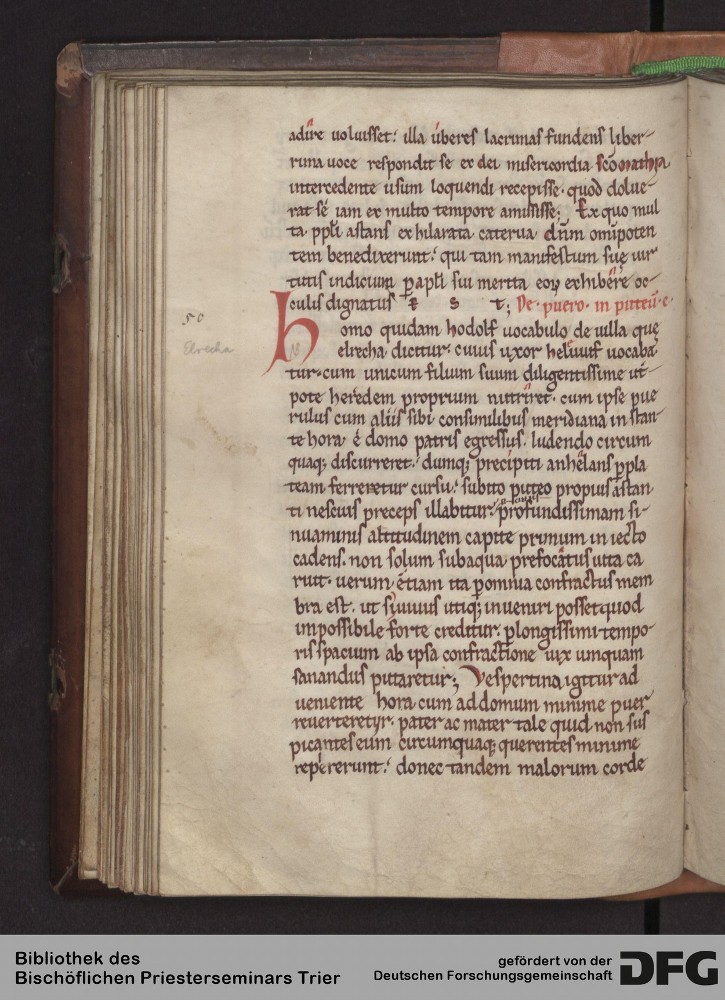 adire uoluisset: illa uberes lacrimas fundens liber-
rima uoce respondit se ex dei misericordia scō mathia
intercedente usum loquendi recepisse. quod dolue-
rat se iam ex multo tempore amisisse; Ex quo mul
ta ppli astans exhilarata caterua dnm omipoten
tem benedixerunt. qui tam manifestum sue uir
tutis indicium p apli sui merita eoꝝ exhibere oc-
culis dignatus E S T; De puero in puteū c.
50
homo quidam hodolf uocabulo de uilla que
Elrecha
elrecha dicitur. cuius uxor heluuif uocaba
tur. cum unicum filium suum diligentissime ut-
pote heredem proprium nutriret. cum ipse pue
rulus cum aliis sibi consimilibus meridiana instan
te hora. e domo patris egressus. ludendo circum
quaq; discurreret. dumq; precipiti anhelans p pla
team ferreretur cursu. subito puteo propius astan
ti nescius preceps illabitur. profundissimam si-
nuaminis altitudinem capite primum in iecto
cadens. non solum sub aqua prefocatus uita ca
ruit. uerum etiam ita p omnia confractus mem
bra est. ut si uiuus utiq; inueniri posset quod
impossibile forte creditur. p longissimi tempo-
ris spacium ab ipsa confractione uix umquam
sanandus putaretur; Vespertina igitur ad
ueniente hora cum ad domum minime puer
reuerteretur. pater ac mater tale quid non sus
picantes eum circumquaq; querentes minime
repererunt. donec tandem malorum corde
Bibliothek des
Bischöflichen Priesterseminars Trier
gefördert von der
Deutschen Forschungsgemeinschaft
DFG